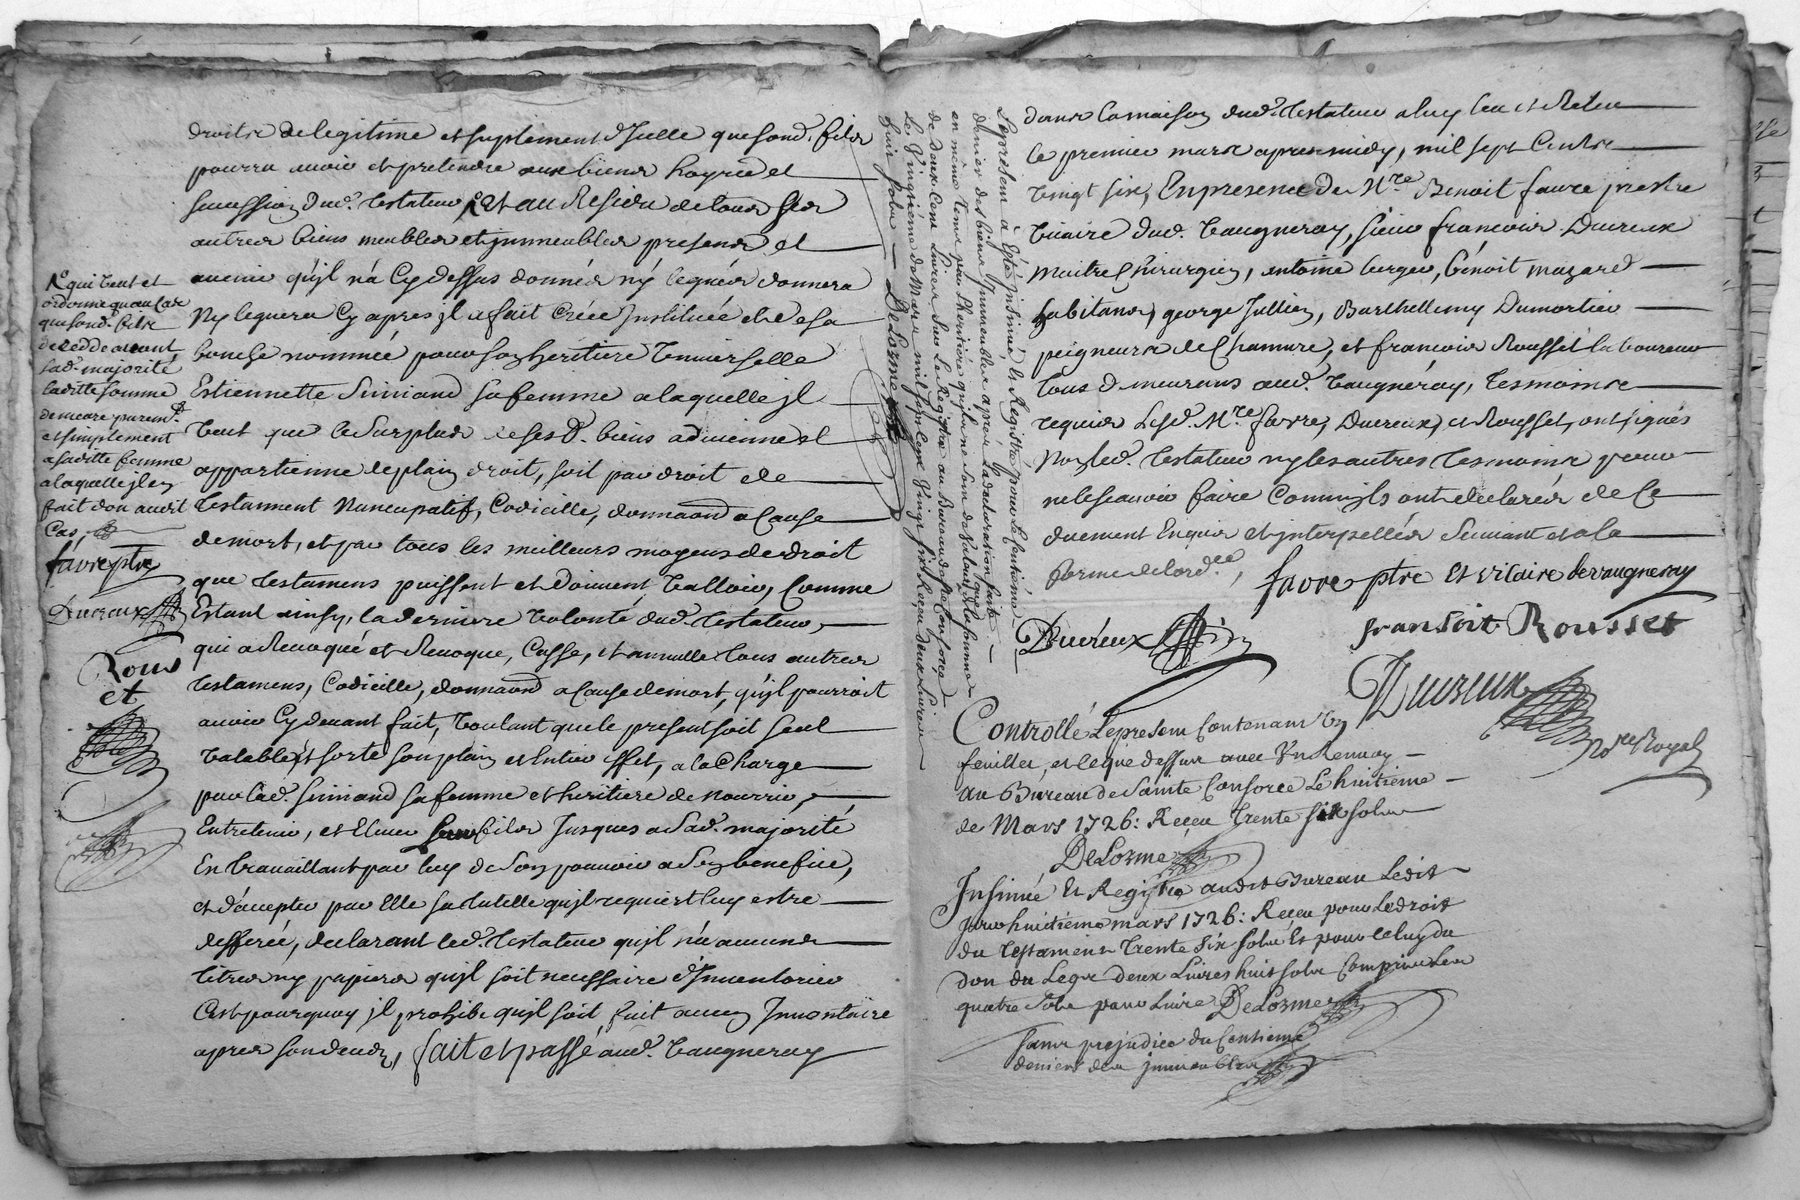 droits de legitime et suplement d'Icelle que sond. filz
pourra avoir et pretendre aux biens hoyrie et
sucession dud. Testateur, Et au Residu de tous ses
autres biens meubles et jmmeubles presens et
avenir qu'jl n'a Cy dessus donnés ny legués donnera
Ny leguera Cy apres jl a fait Créée Jnstituée et de sa
bouche nommée pour son heritiere Universelle
Estiennette Simiand sa femme a laquelle jl
Veut que le Surplus de ses d. biens advienne et
appartienne de plain droit, soit par droit de
Testament Nuncupatif, Codicille, donnaon a Cause
de mort, et par tous les meilleurs moyens de droit
que Testamens puissent et doivent Valloir, Comme
Estant ainsy, la derniere Volonté dud. Testateur,
qui a Revoqué et Revoque, Casse, et annulle tous autres
Testamens, Codicille, donnaon a Cause de mort, qu'jl pourroit
avoir Cy devant fait, Voulant que le present soit seul
Valable, et sorte son plain et Entier Effet, a la Charge
par lad. Simiand sa femme et heritiere de nourrir,
Entretenir, et Elever filz Jusques a Sad. majorité
En travaillant par luy de Son pouvoir a Son benefice,
et d'accepter par Elle sa tutelle qu'jl requiert luy estre
defferée, declarant led. Testateur qu'jl n'a aucuns
titres ny papiers qu'jl soit necessaire d'Inventorier
C'est pourquoy jl prohibe qu'jl soit fait aucun Jnventaire
apres son deceds, fait et passé aud. Vaugneray
qui Veut et
ordonne qu'au Cas
que sond. filz
decedde avant
sad. majorité
laditte somme
demeure purem.t
et simplement
a saditte femme
a laquelle jl en
fait don audit
Cas,
favre ptre
Ducreux
Rous
et
Le present a Esté jnsinué, et Registré pour le Centieme
denier des biens Jmmeubles apres la declaration faite
en même tems par l'heritiere qu'jls ne sont de Valeur que de la somme
de deux Cent Livres Sur Le Registre au Bureau de Ste Consorce
Le Vingtième de Mars mil sept cent Vingt six Reçu deux Livres
huit solz
De Lorme
dans la maison dud. Testateur a luy leu et Releu
le premier mars apres midy, mil sept Centz
Vingt six, En presence de Mre. Benoit favre prestre
Vicaire dud. Vaugneray, sieur francois Ducreux
Maitre Chirurgien, antoine berger, benoit mazard
habitans, george Jullien, Barthellemy Dumortier
peigneurs de Chanvre, et francois Rousset laboureur
tous demeurans aud. Vaugneray, tesmoins
requis Lesd. Mre favre, Ducreux, et Rousset, ont signés
Non led. Testateur ny les autres tesmoins pour
ne le scavoir faire Comm'jls ont declarés de Ce
duement Enquis et interpellés Suivant et a la
forme de l'ord.ce,
favre ptre Et vicaire de vaugneray
Ducreux
fransoit Rousset
Ducreux
No.re Royal
Controllé Le present Contenant Un
feuillet, et le que dessus avec Un Renvoy
au Bureau de Sainte Consorce Le huitième
de Mars 1726: Receu trente six solz
De Lorme
Jnsinué Et Registré audit Bureau Ledit
Jour huitieme mars 1726: Receu pour Le droit
du testament trente six solz Et pour celuy du
don du Legs deux Livres huit solz Compris Les
quatre solz pour Livre De Lorme
sans prejudice du Centieme
denier des jmmeubles